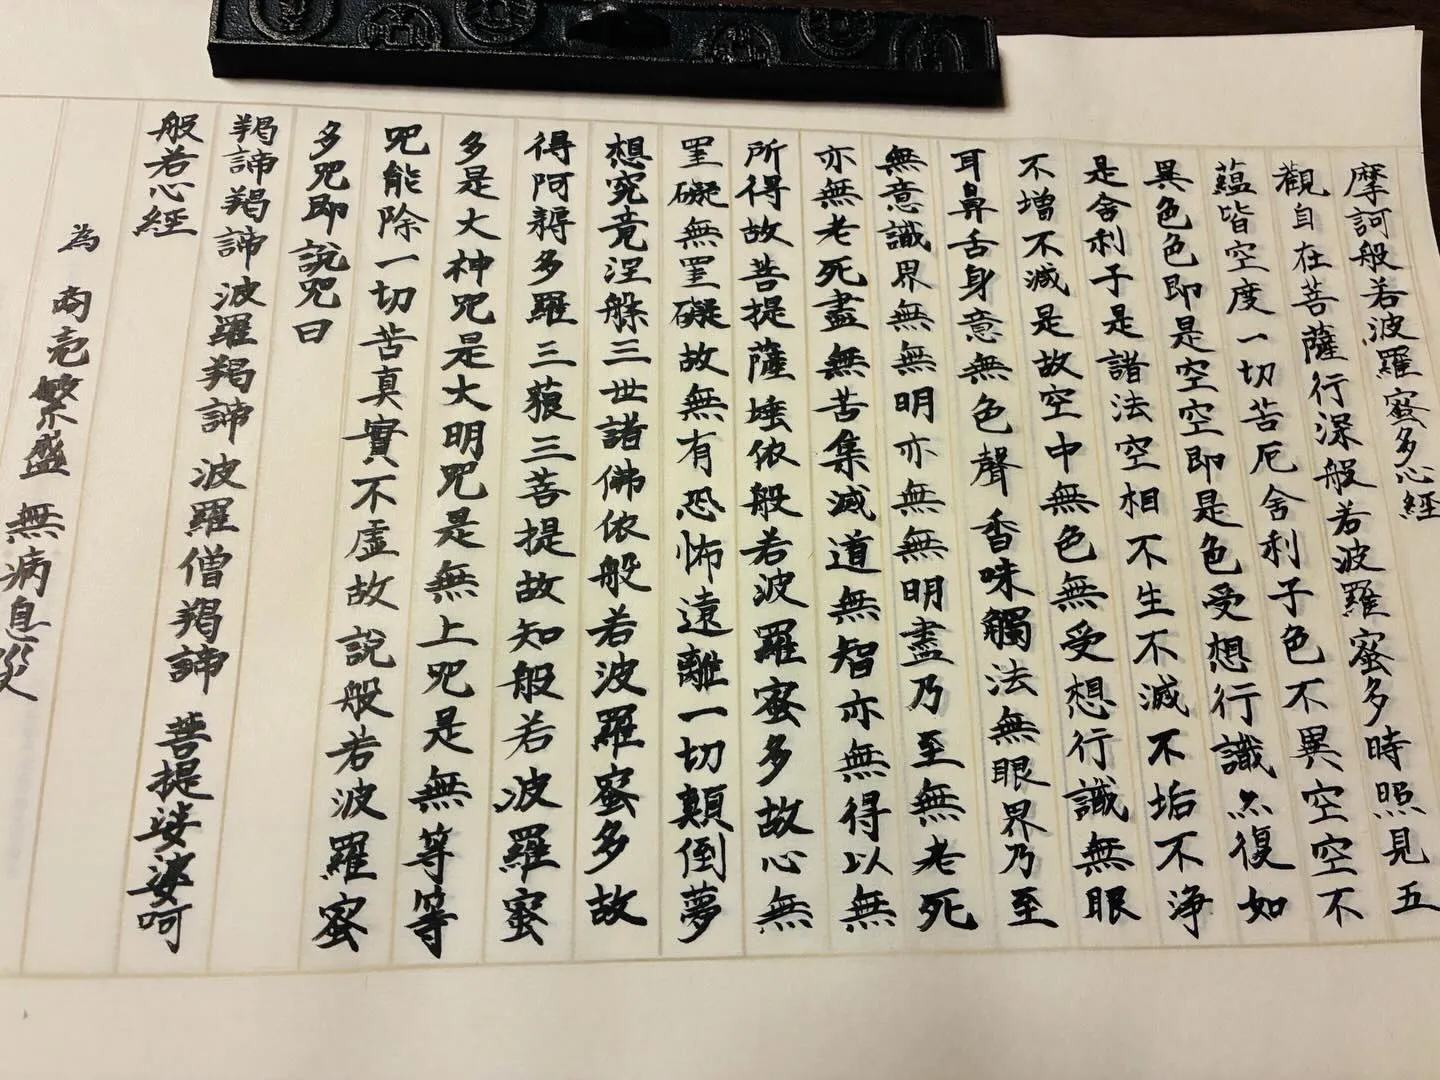 摩訶般若波羅蜜多心経
觀自在菩薩行深般若波羅蜜多時照見五
蘊皆空度一切苦厄舍利子色不異空空不
異色色即是空空即是色受想行識亦復如
是舍利子是諸法空相不生不滅不垢不浄
不増不滅是故空中無色無受想行識無眼
耳鼻舌身意無色聲香味觸法無眼界乃至
無意識界無無明亦無無明盡乃至無老死
亦無老死盡無苦集滅道無智亦無得以無
所得故菩提薩埵依般若波羅蜜多故心無
罣礙無罣礙故無有恐怖遠離一切顛倒夢
想究竟涅槃三世諸佛依般若波羅蜜多故
得阿耨多羅三藐三菩提故知般若波羅蜜
多是大神咒是大明咒是無上咒是無等等
咒能除一切苦真實不虚故説般若波羅蜜
多咒即説咒曰
羯諦羯諦波羅羯諦波羅僧羯諦菩提娑婆呵
般若心経
為商売繁盛無病息災